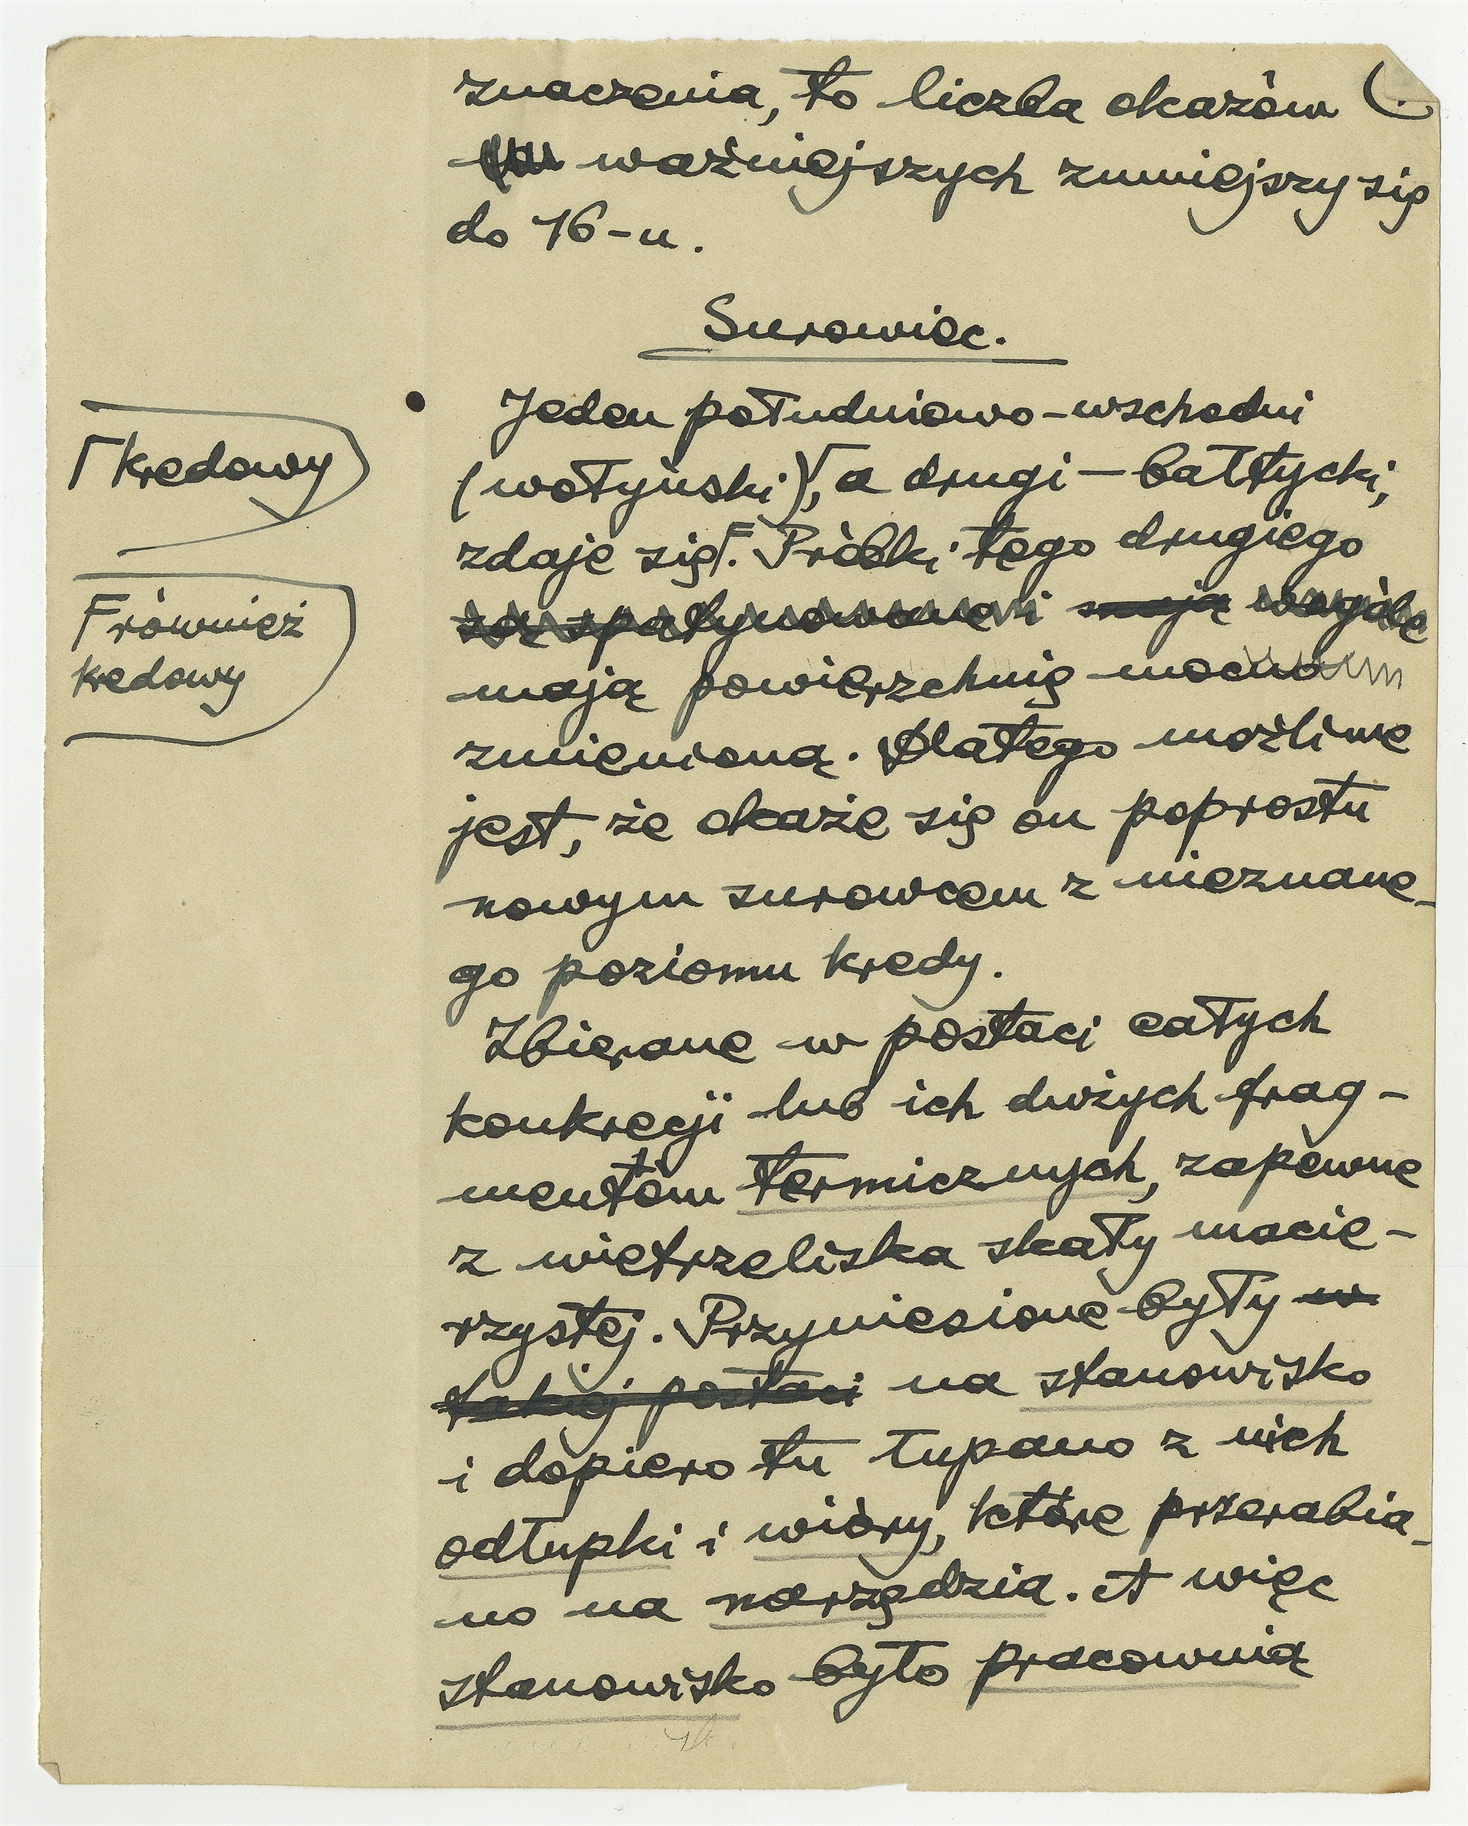 znaczenia, to liczba okazów
ważniejszych zmniejszy się
do 16-u.
Surowiec.
Jeden południowo-wschodni
(wołyński)⌈, a drugi – bałtycki,
zdaje się F. Próbki tego drugiego
są spatynowane i mają wogóle
mają powierzchnię mocno
zmienioną. Dlatego możliwe
jest, że okaże się on poprostu
nowym surowcem z nieznane-
go poziomu kredy.
Zbierane w postaci całych
konkrecji lub ich dużych frag-
mentów termicznych, zapewne
z wietrzeliska skały macie-
rzystej. Przyniesione były w
takiej postaci na stanowisko
i dopiero tu łupano z nich
odłupki i wióry, które przerabia-
no na narzędzia. A więc
stanowisko było pracownią
⌈ kredowy
F również
kredowy